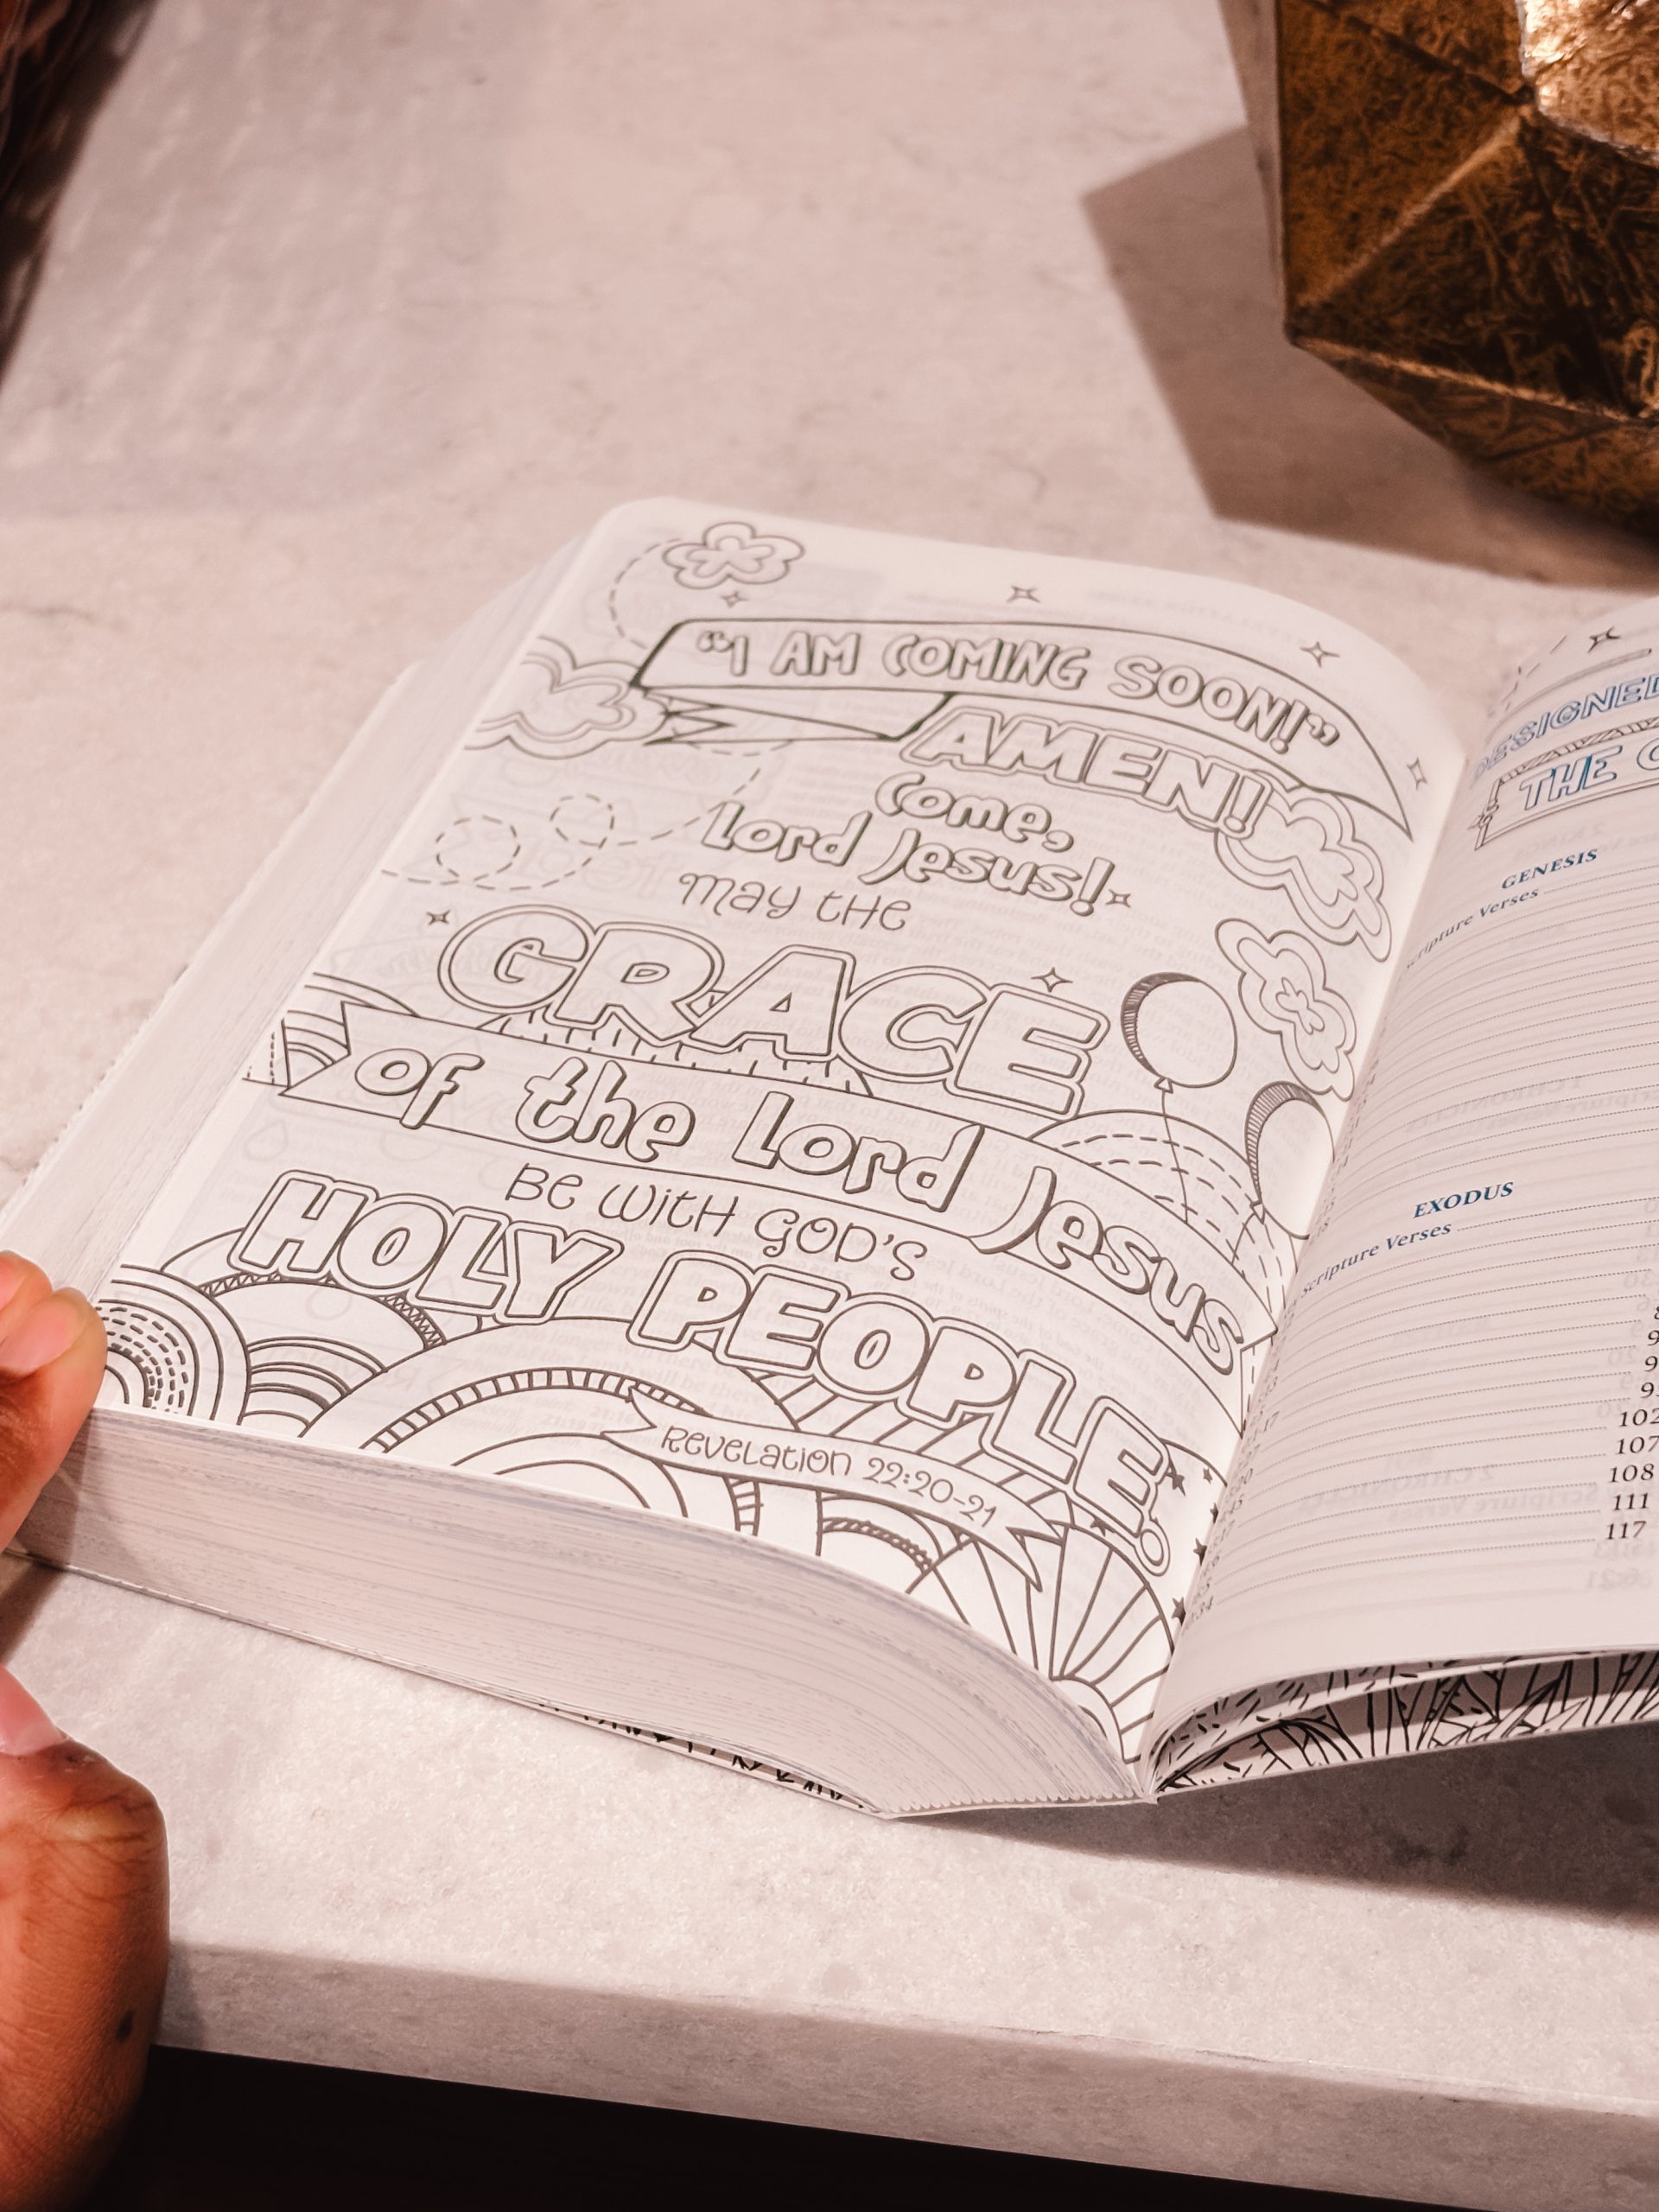 “I AM COMING SOON!”
AMEN!
Come,
Lord Jesus!
MAY THE
GRACE
of the Lord Jesus
BE WITH GOD'S
HOLY PEOPLE.
REVELATION 22:20-21
DESIGNED
THE
GENESIS
Scripture Verses
EXODUS
Scripture Verses
102
107
108
111
117